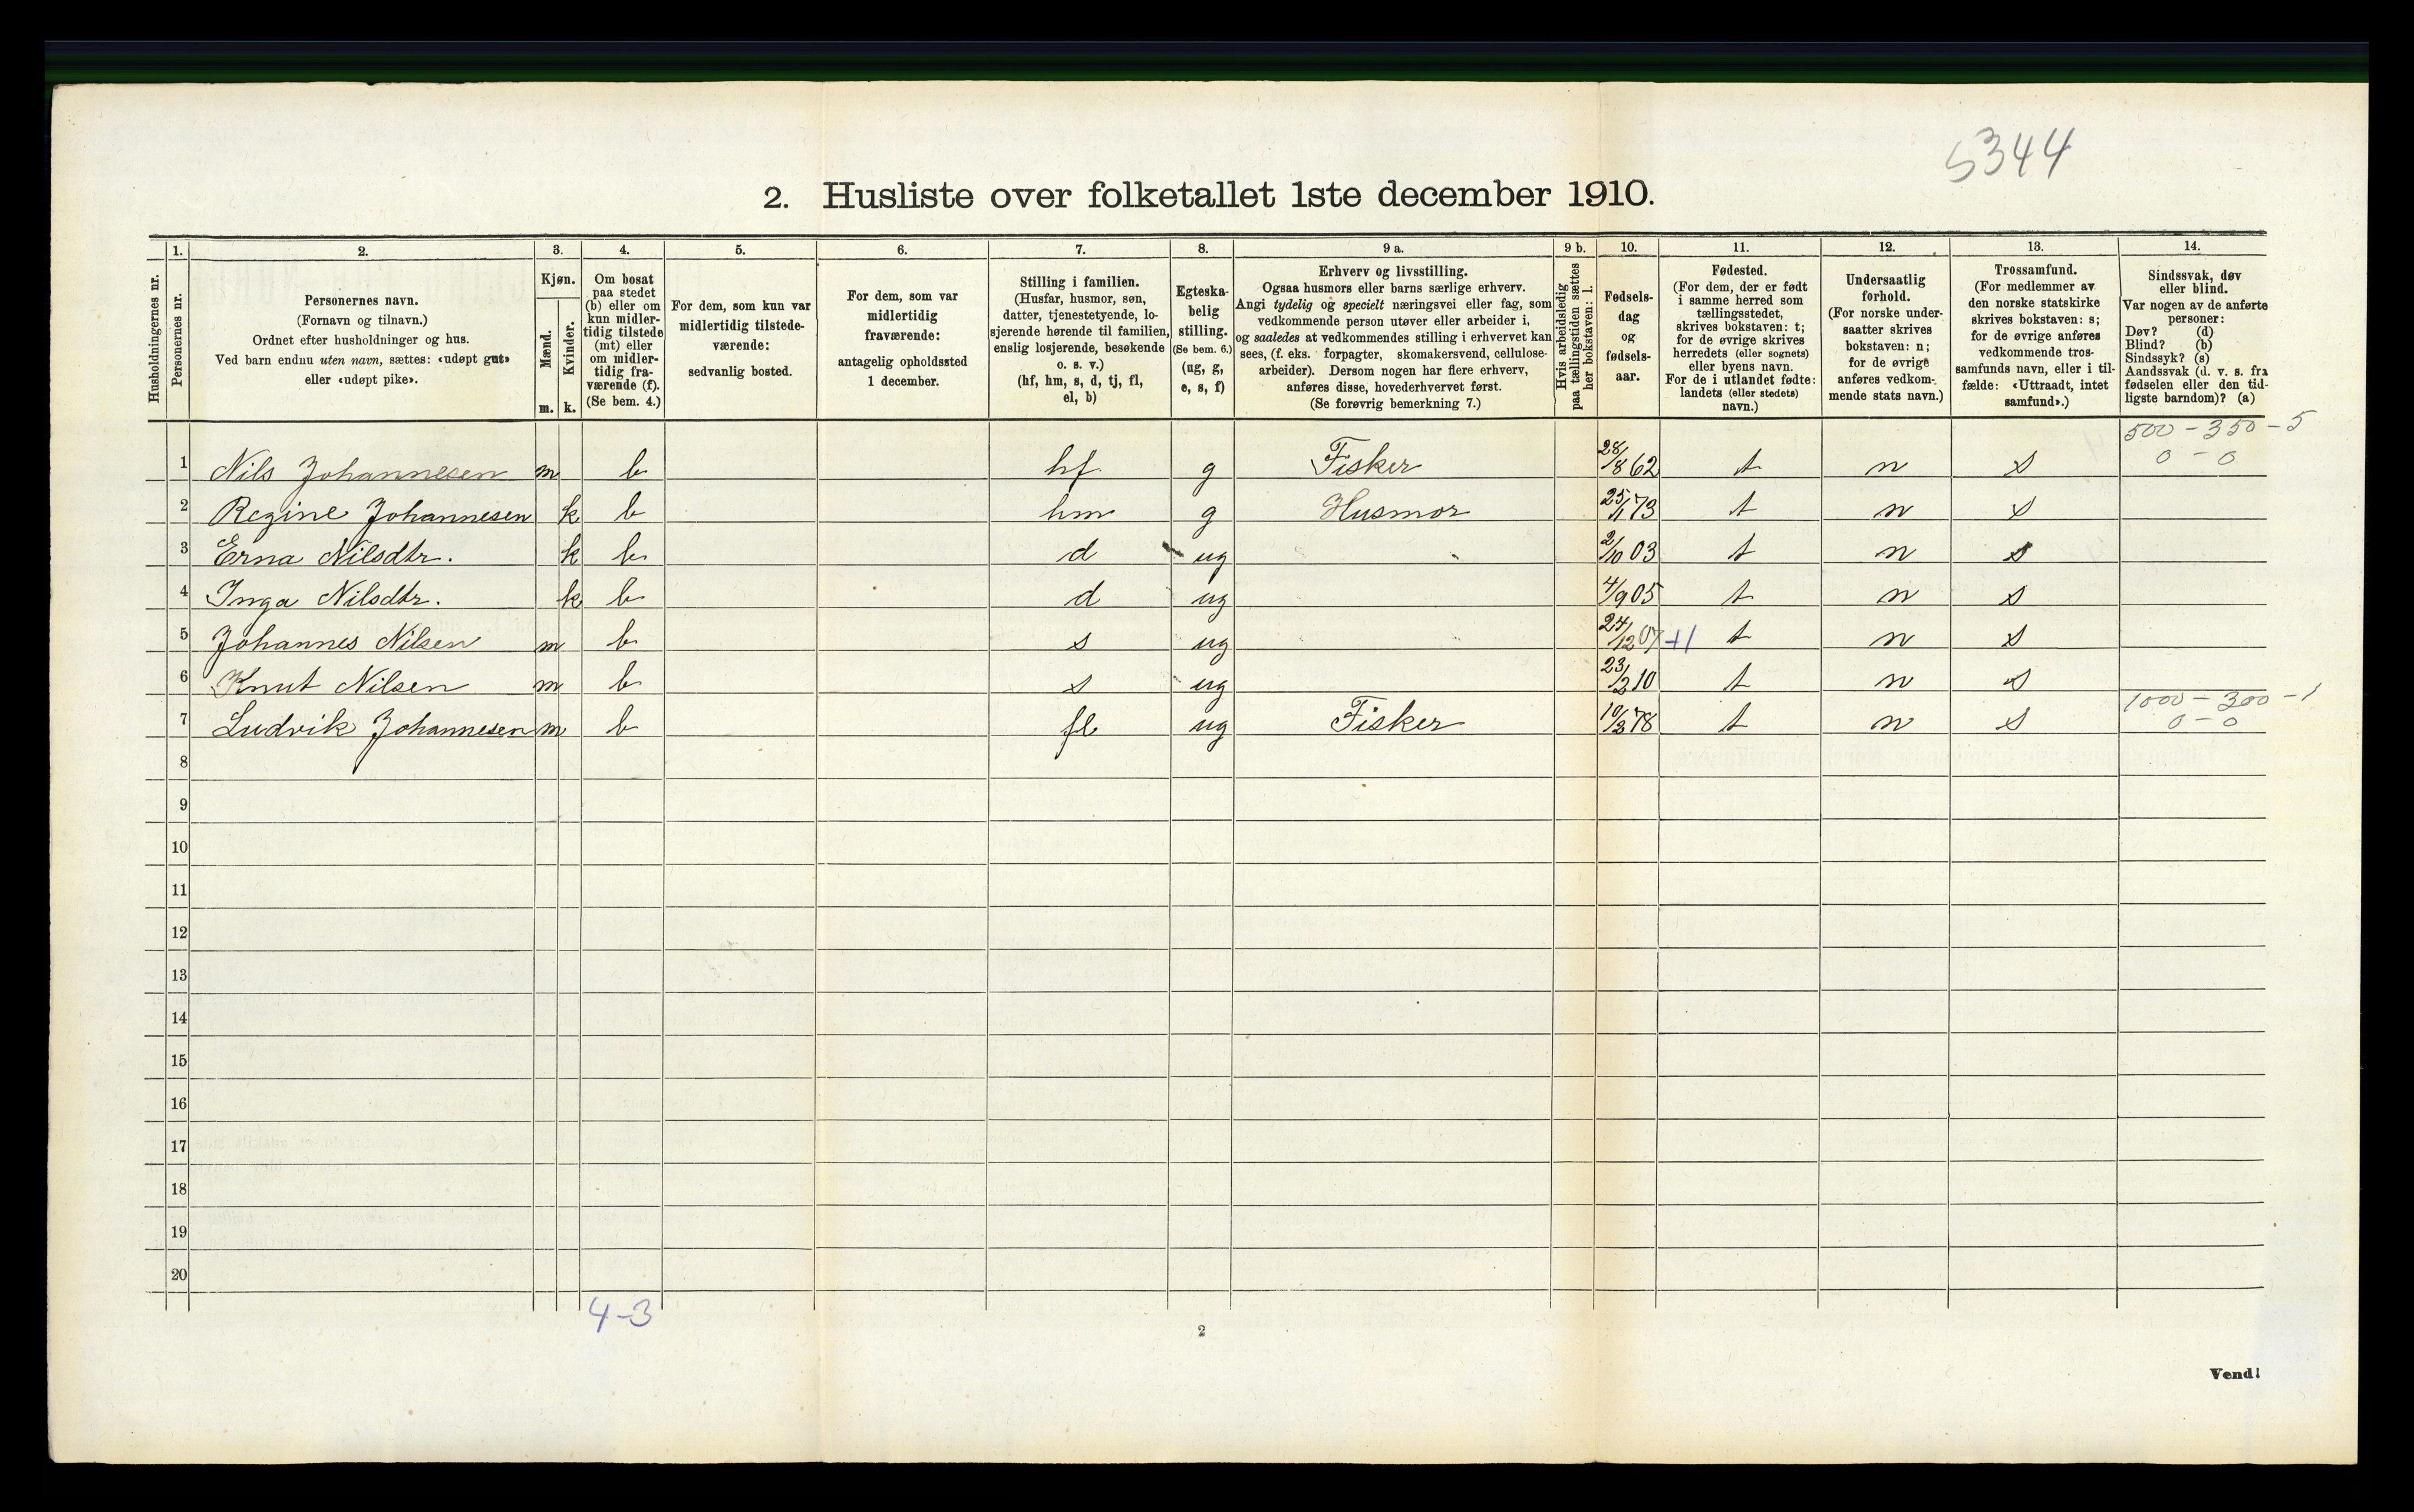 5344
2. Husliste over folketallet 1ste december 1910.
1. 2. 3. 4. 5. 6. 7. 8. 9 a. 9 b. 10. 11. 12. 13. 14.
Husholdningernes nr.
Personernes nr.
Personernes navn.
(Fornavn og tilnavn.)
Ordnet efter husholdninger og hus.
Ved barn endnu uten navn, sættes: «udøpt gut»
eller «udøpt pike».
Kjøn.
Mænd.
Kvinder.
m. k.
Om bosat
paa stedet
(b) eller om
kun midler-
tidig tilstede
(mt) eller
om midler-
tidig fra-
værende (f).
(Se bem. 4.)
For dem, som kun var
midlertidig tilstede-
værende:
sedvanlig bosted.
For dem, som var
midlertidig
fraværende:
antagelig opholdssted
1 december.
Stilling i familien.
(Husfar, husmor, søn,
datter, tjenestetyende, lo-
sjerende hørende til familien,
enslig losjerende, besøkende
o. s. v.)
(hf, hm, s, d, tj, fl,
el, b)
Egteska-
belig
stilling.
(Se bem. 6.)
(ug, g,
e, s, f)
Erhverv og livsstilling.
Ogsaa husmors eller barns særlige erhverv.
Angi tydelig og specielt næringsvei eller fag, som
vedkommende person utøver eller arbeider i,
og saaledes at vedkommendes stilling i erhvervet kan
sees, (f. eks. forpagter, skomakersvend, cellulose-
arbeider). Dersom nogen har flere erhverv,
anføres disse, hovederhvervet først.
(Se forøvrig bemerkning 7.)
Hvis arbeidsledig
paa tællingstiden sættes
her bokstaven: l.
Fødsels-
dag
og
fødsels-
aar.
Fødested.
(For dem, der er født
i samme herred som
tællingsstedet,
skrives bokstaven: t;
for de øvrige skrives
herredets (eller sognets)
eller byens navn.
For de i utlandet fødte:
landets (eller stedets)
navn.)
Undersaatlig
forhold.
(For norske under-
saatter skrives
bokstaven: n;
for de øvrige
anføres vedkom-
mende stats navn.)
Trossamfund.
(For medlemmer av
den norske statskirke
skrives bokstaven: s;
for de øvrige anføres
vedkommende tros-
samfunds navn, eller i til-
fælde: «Uttraadt, intet
samfund».)
Sindssvak, døv
eller blind.
Var nogen av de anførte
personer:
Døv? (d)
Blind? (b)
Sindssyk? (s)
Aandssvak (d. v. s. fra
fødselen eller den tid-
ligste barndom)? (a)
500 - 350 - 5
0 - 0
1 Nils Johannesen m b hf g Fisker 28/8 62 t n s
2 Regine Johannesen k b hm g Husmor 25/11 73 t n s
3 Erna Nilsdtr. k b d ug 2/10 03 t n s
4 Inga Nilsdtr. k b d ug 4/9 05 t n s
5 Johannes Nilsen m b s ug 24/12 07 +1 t n s
6 Knut Nilsen m b s ug 23/2 10 t n s
1000 - 300 - 1
7 Ludvik Johannesen m b fl ug Fisker 10/3 78 t n s 0 - 0
8
9
10
11
12
13
14
15
16
17
18
19
20
4-3
2
Vend!